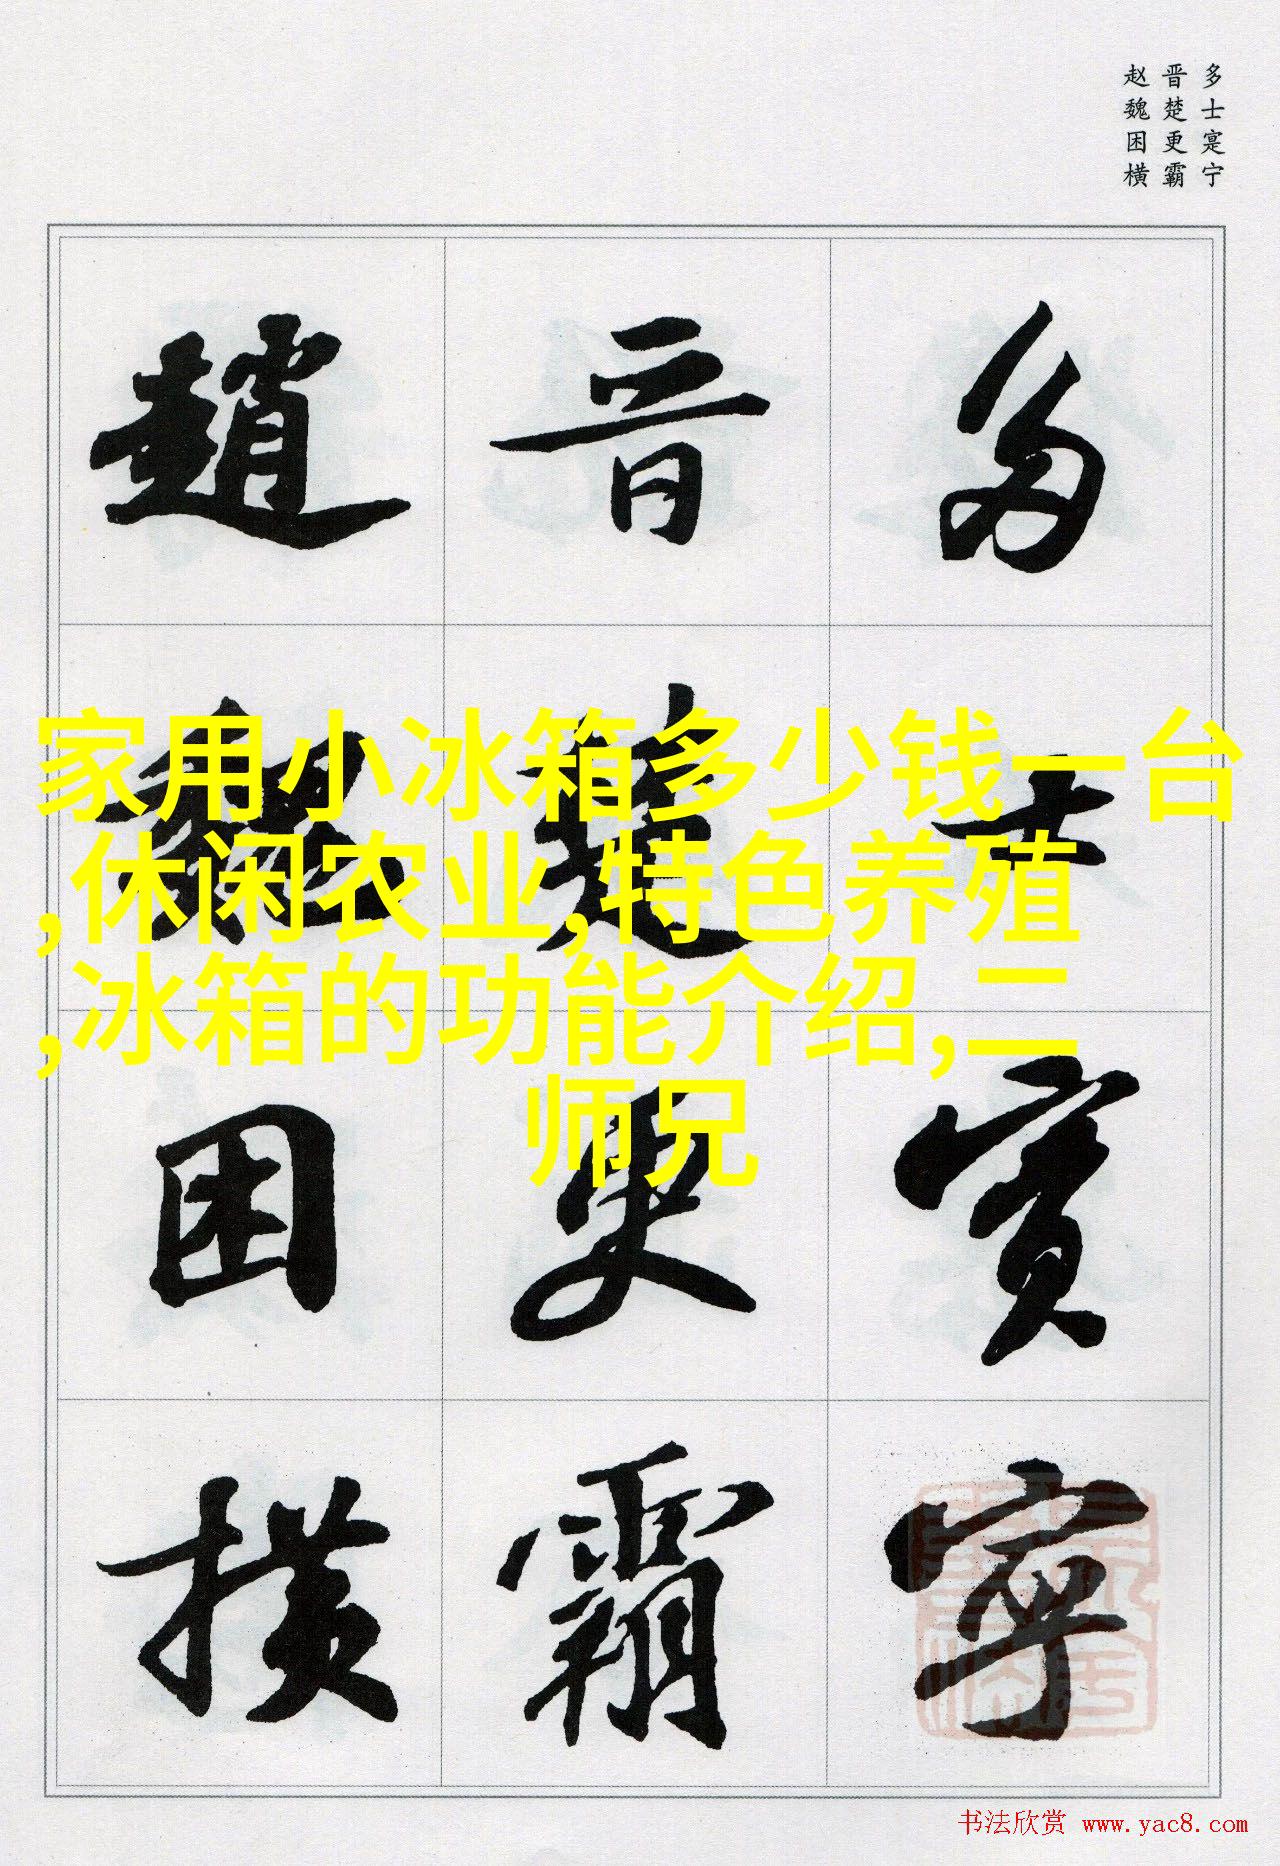 多士寔宁
晋楚更霸
赵魏困横
多士寔寧
晋楚更霸
趙魏困横
家用小冰箱多少钱一台
,休闲农业,特色养殖
,冰箱的功能介绍,二
师兄
书法欣赏 www.yac8.com